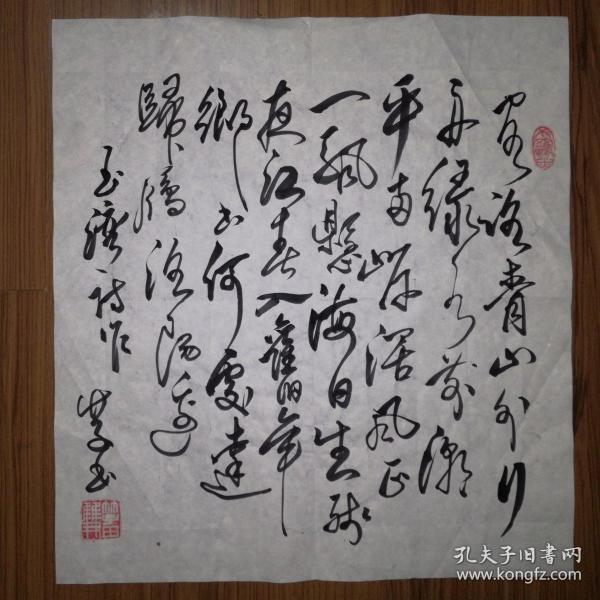 客路青山外行
舟绿水前潮
平两岸阔风正
一帆懸海日生残
夜江春入舊年
鄉书何處達
歸雁洛阳边
王湾诗
孔夫子旧书网
www.kongfz.com